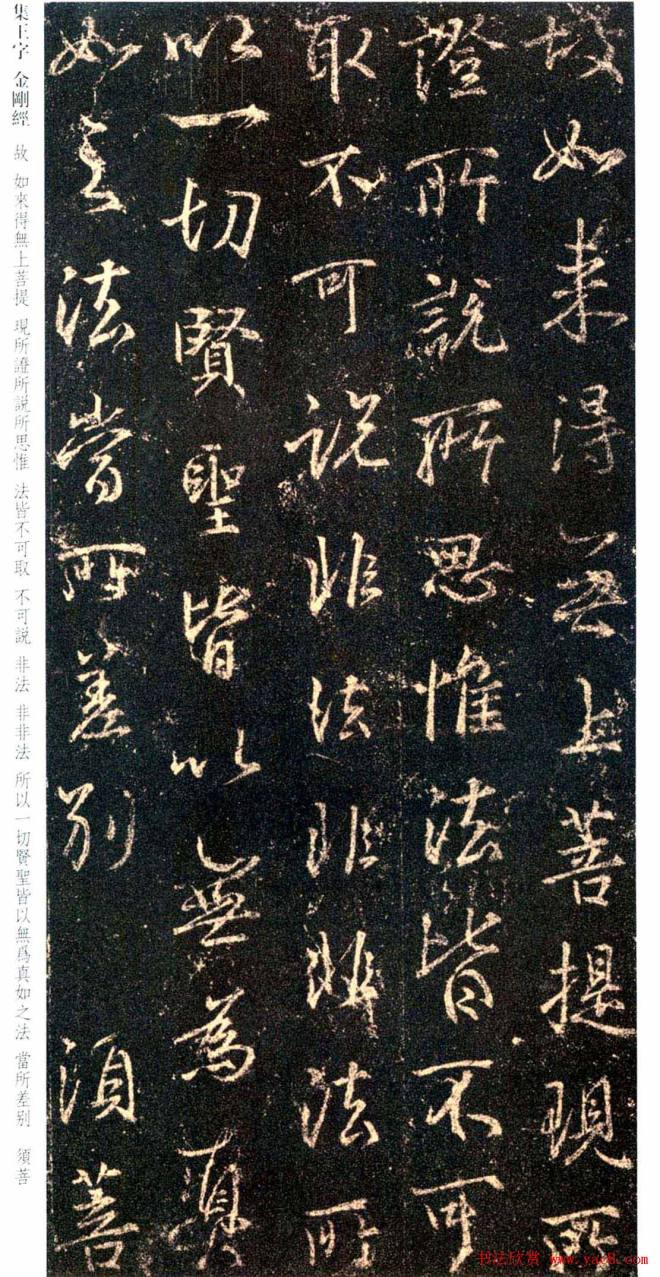 故如来得無上菩提現所
證所說所思惟法皆不可
取不可说非法非非法所
以一切賢聖皆以無為真
如之法當所差别 須菩
集王字 金剛經 故 如來得無上菩提 現所證所説所思惟 法皆不可取 不可説 非法 非非法 所以一切賢聖皆以無爲真如之法 當所差别 須菩
书法欣赏 www.yac8.com